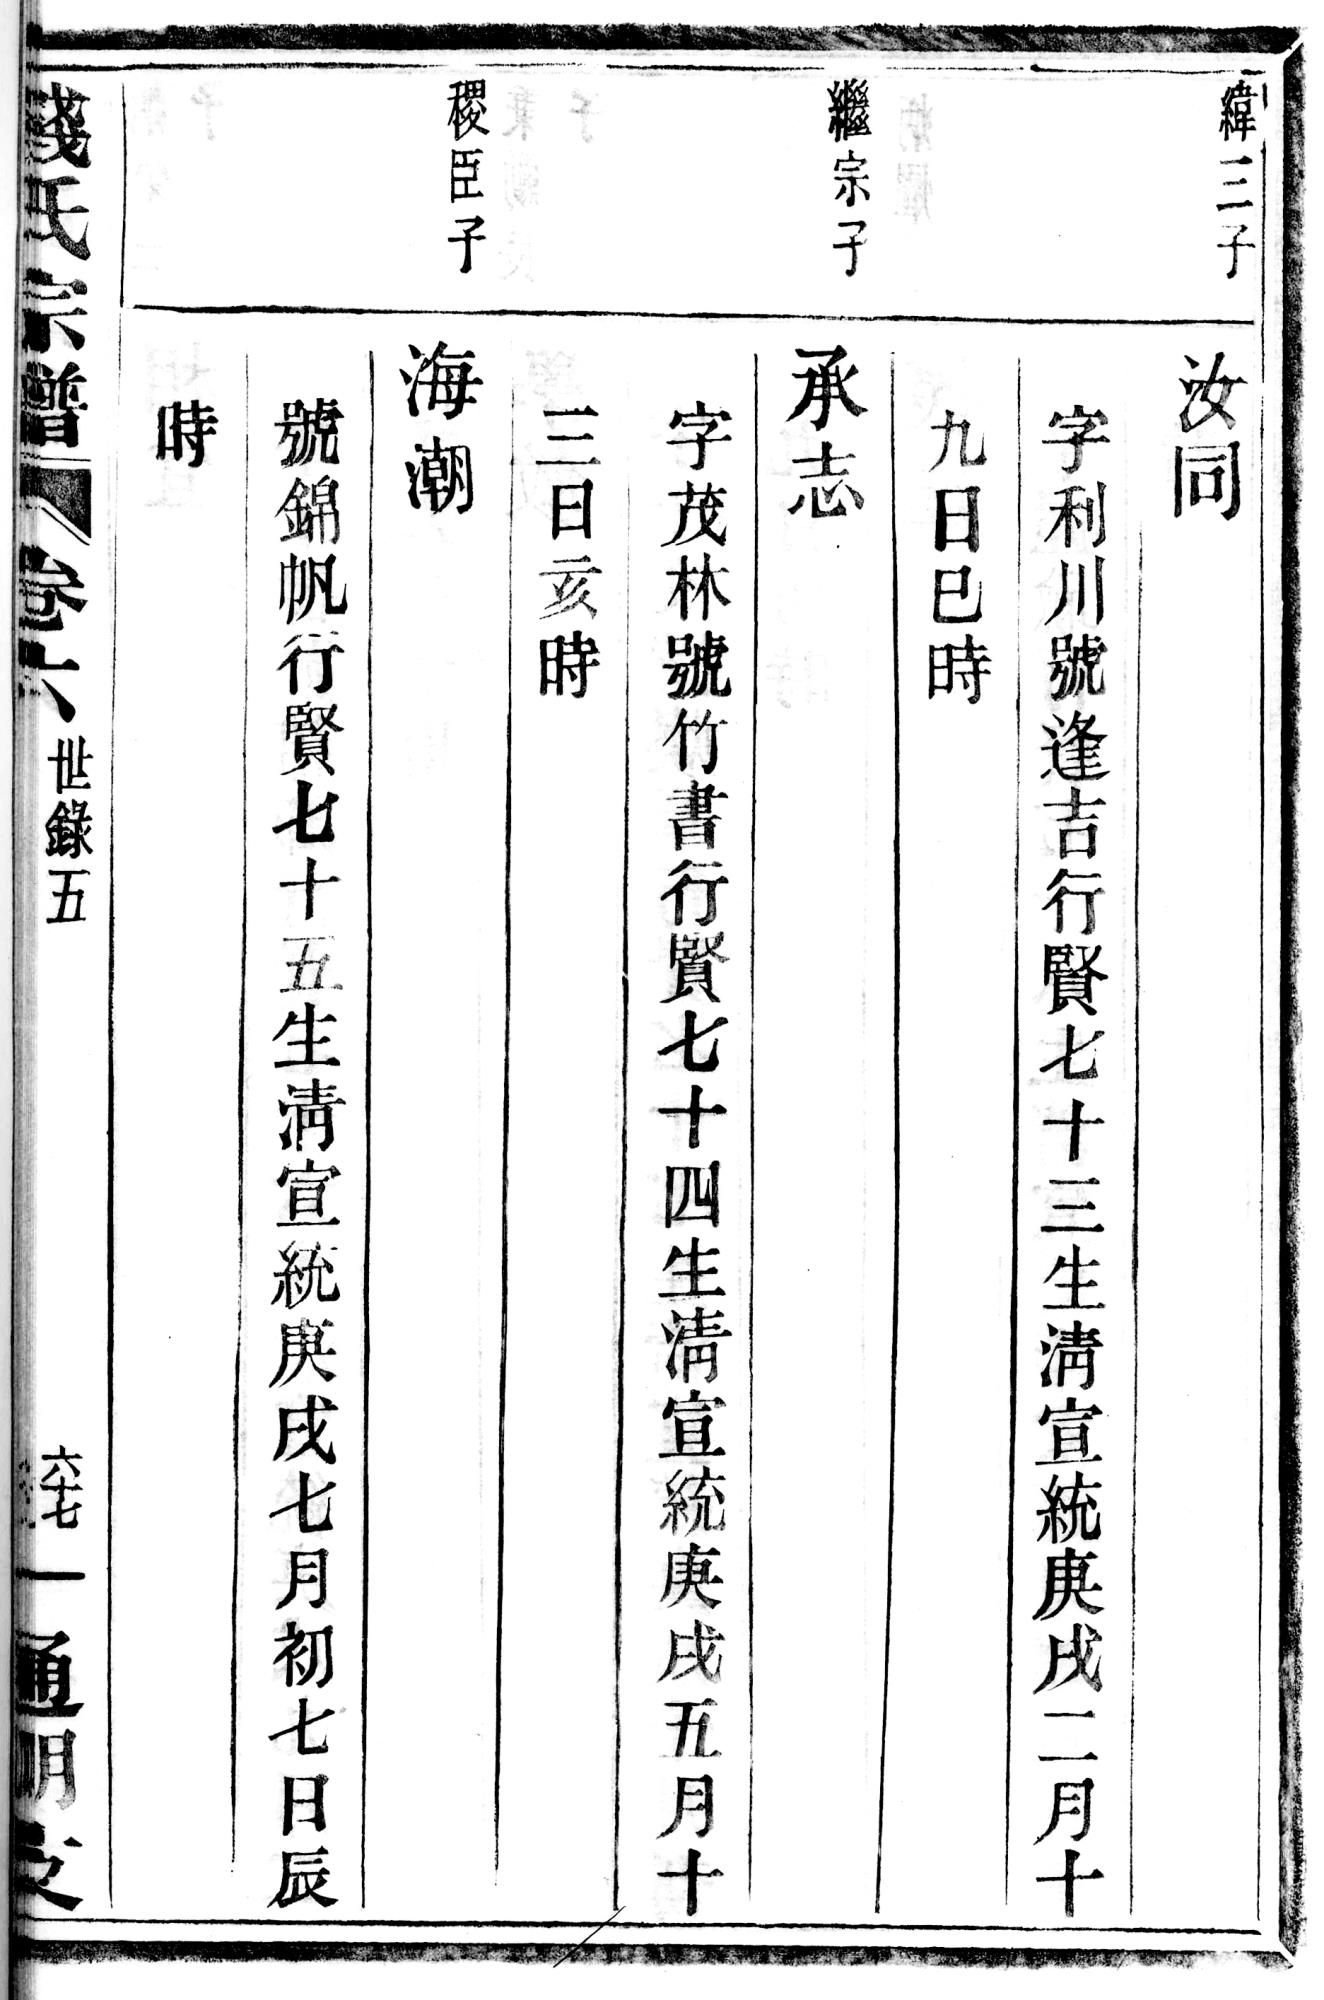 緯三子
汝同
字利川號逢吉行賢七十三生淸宣統庚戌二月十
九日巳時
繼宗子
承志
字茂林號竹書行賢七十四生淸宣統庚戌五月十
三日亥時
稷臣子
海潮
號錦帆行賢七十五生淸宣統庚戌七月初七日辰
時
錢氏宗譜
卷六
世錄五
六十七
通明支